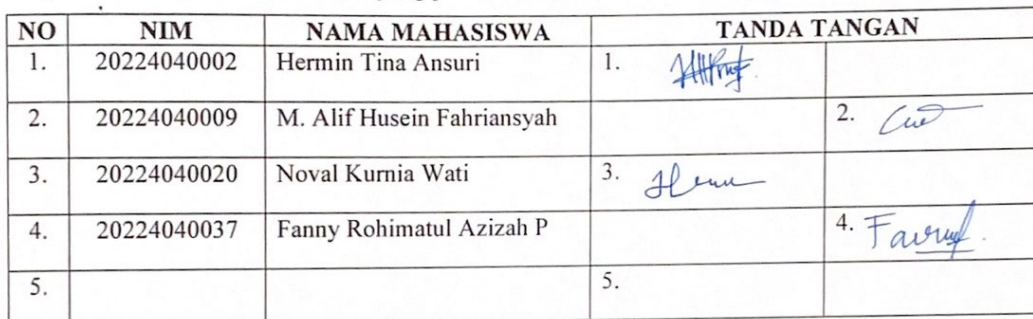 NO NIM NAMA MAHASISWA TANDA TANGAN
1. 20224040002 Hermin Tina Ansuri 1.
2. 20224040009 M. Alif Husein Fahriansyah 2.
3. 20224040020 Noval Kurnia Wati 3.
4. 20224040037 Fanny Rohimatul Azizah P 4.
5. 5.